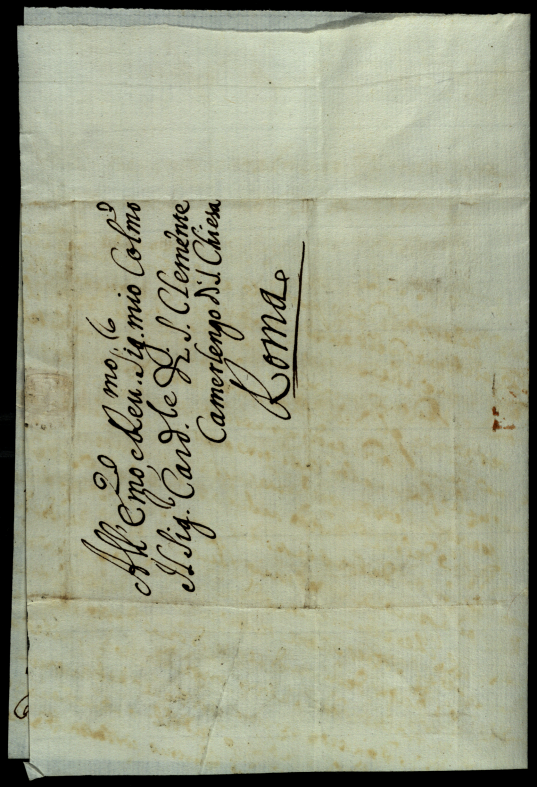 All' Emo et Reu.mo Sig. mio Colmo
Il Sig.r Card.le di S. Clemente
Camerlengo di S. Chiesa
Roma